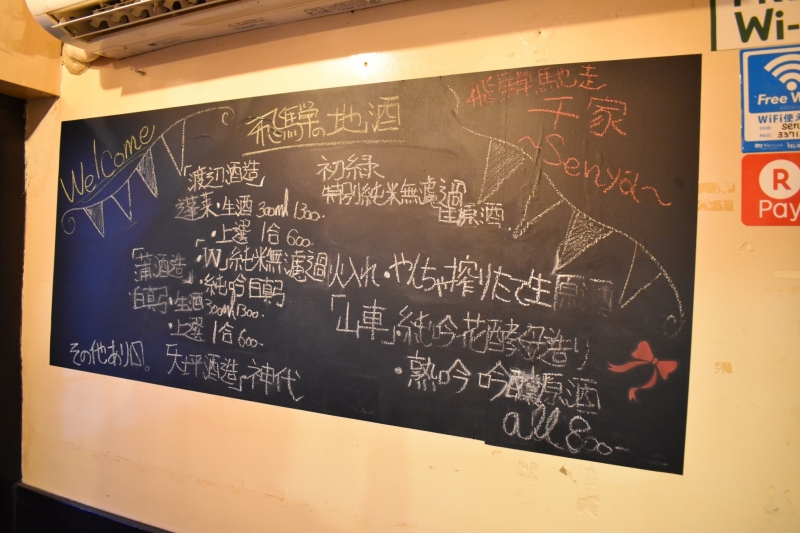 Welcome
飛騨の地酒
飛騨馳走
千家
~Senya~
「渡辺酒造」
蓬莱・生酒 300ml 1300-
・上選 1合 600-
・W 純米無濾過火入れ・やんちゃ搾りたて生原酒
初緑
特別純米無濾過
生原酒
「蒲酒造」
白真弓
・純吟白真弓
・生酒 300ml 1300-
・上選 1合 600-
「山車」純吟花酵母造り
・熟吟 吟醸原酒
all 800-
その他あり〼。
「天平酒造」神代
Wi-
Free W
WiFi使え
3371
R
Pay